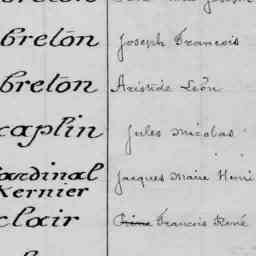 breton Joseph François
breton Aristide Léon
caplin Jules Nicolas
Cardinal Jacques Marie Henri
Kernier
clair François René